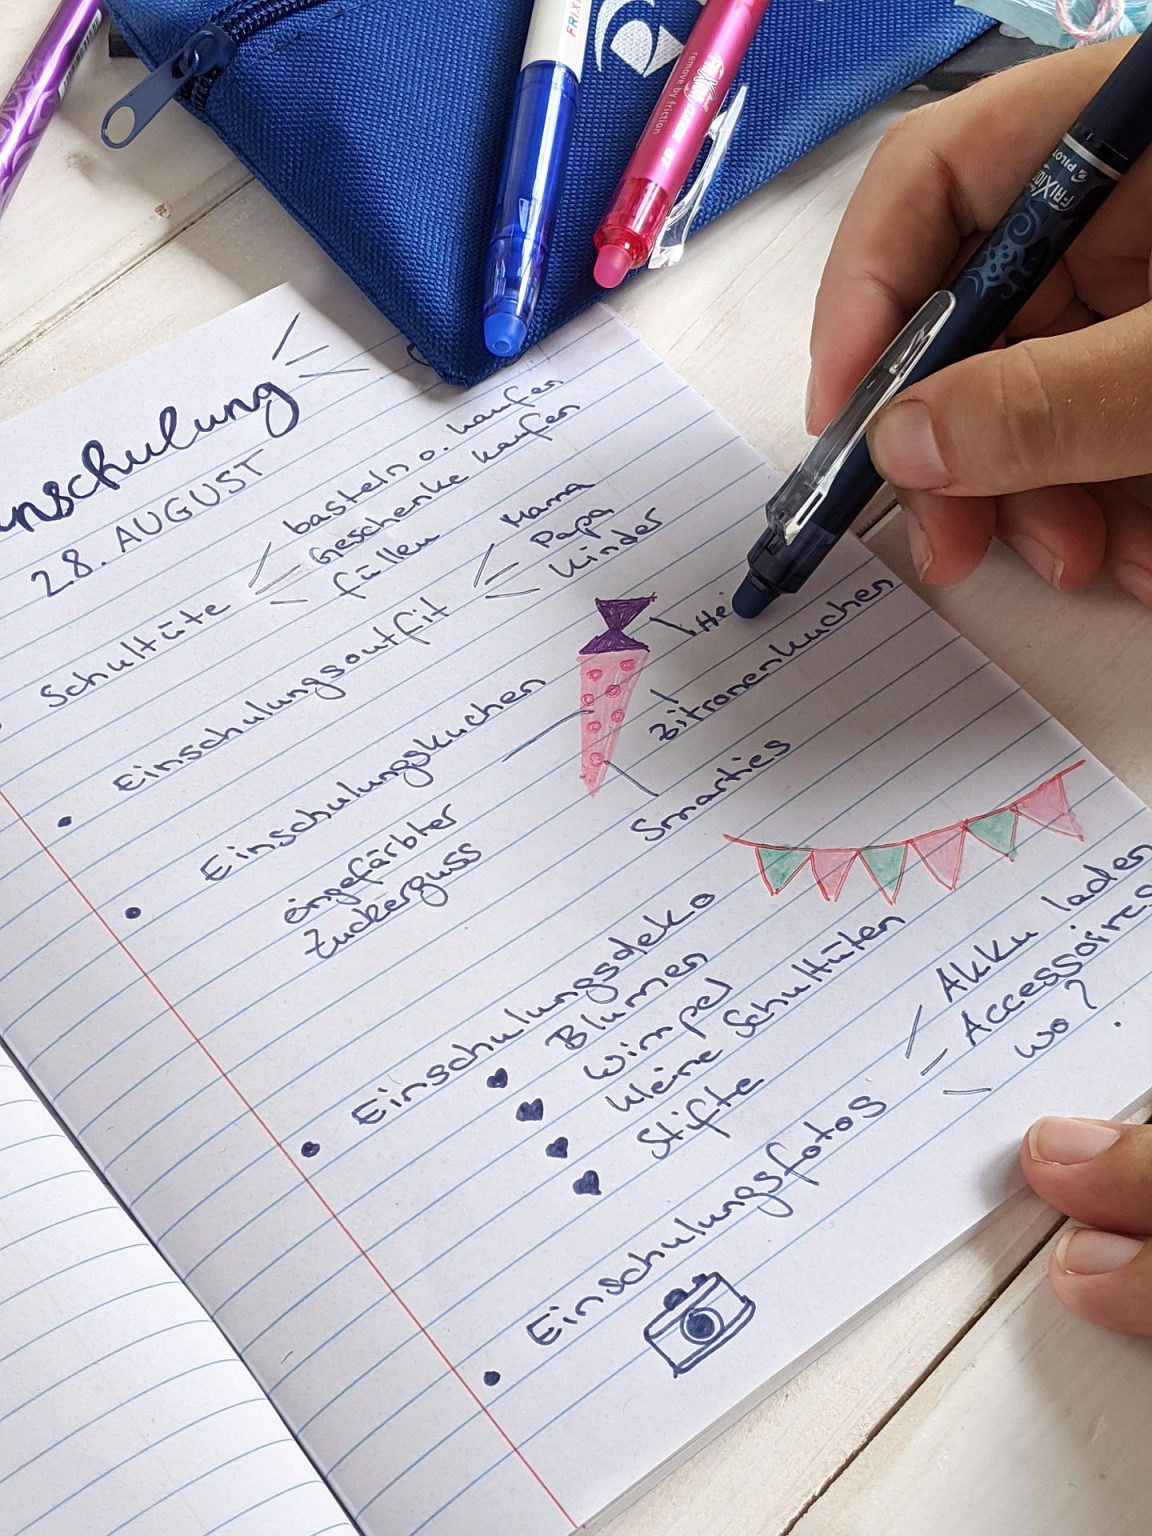 inschulung
28. AUGUST
Schultüte
basteln o. kaufen
Geschenke kaufen
füllen
Einschulungsoutfit
Mama
Papa
Kinder
Einschulungskuchen
eingefärbter
Zuckerguss
Zitronenkuchen
Smarties
Einschulungsdeko
Blumen
Wimpel
kleine Schultüten
Stifte
Einschulungsfotos
Akku laden
Accessoires
wo?
FRIXI
remove by friction
PILOT